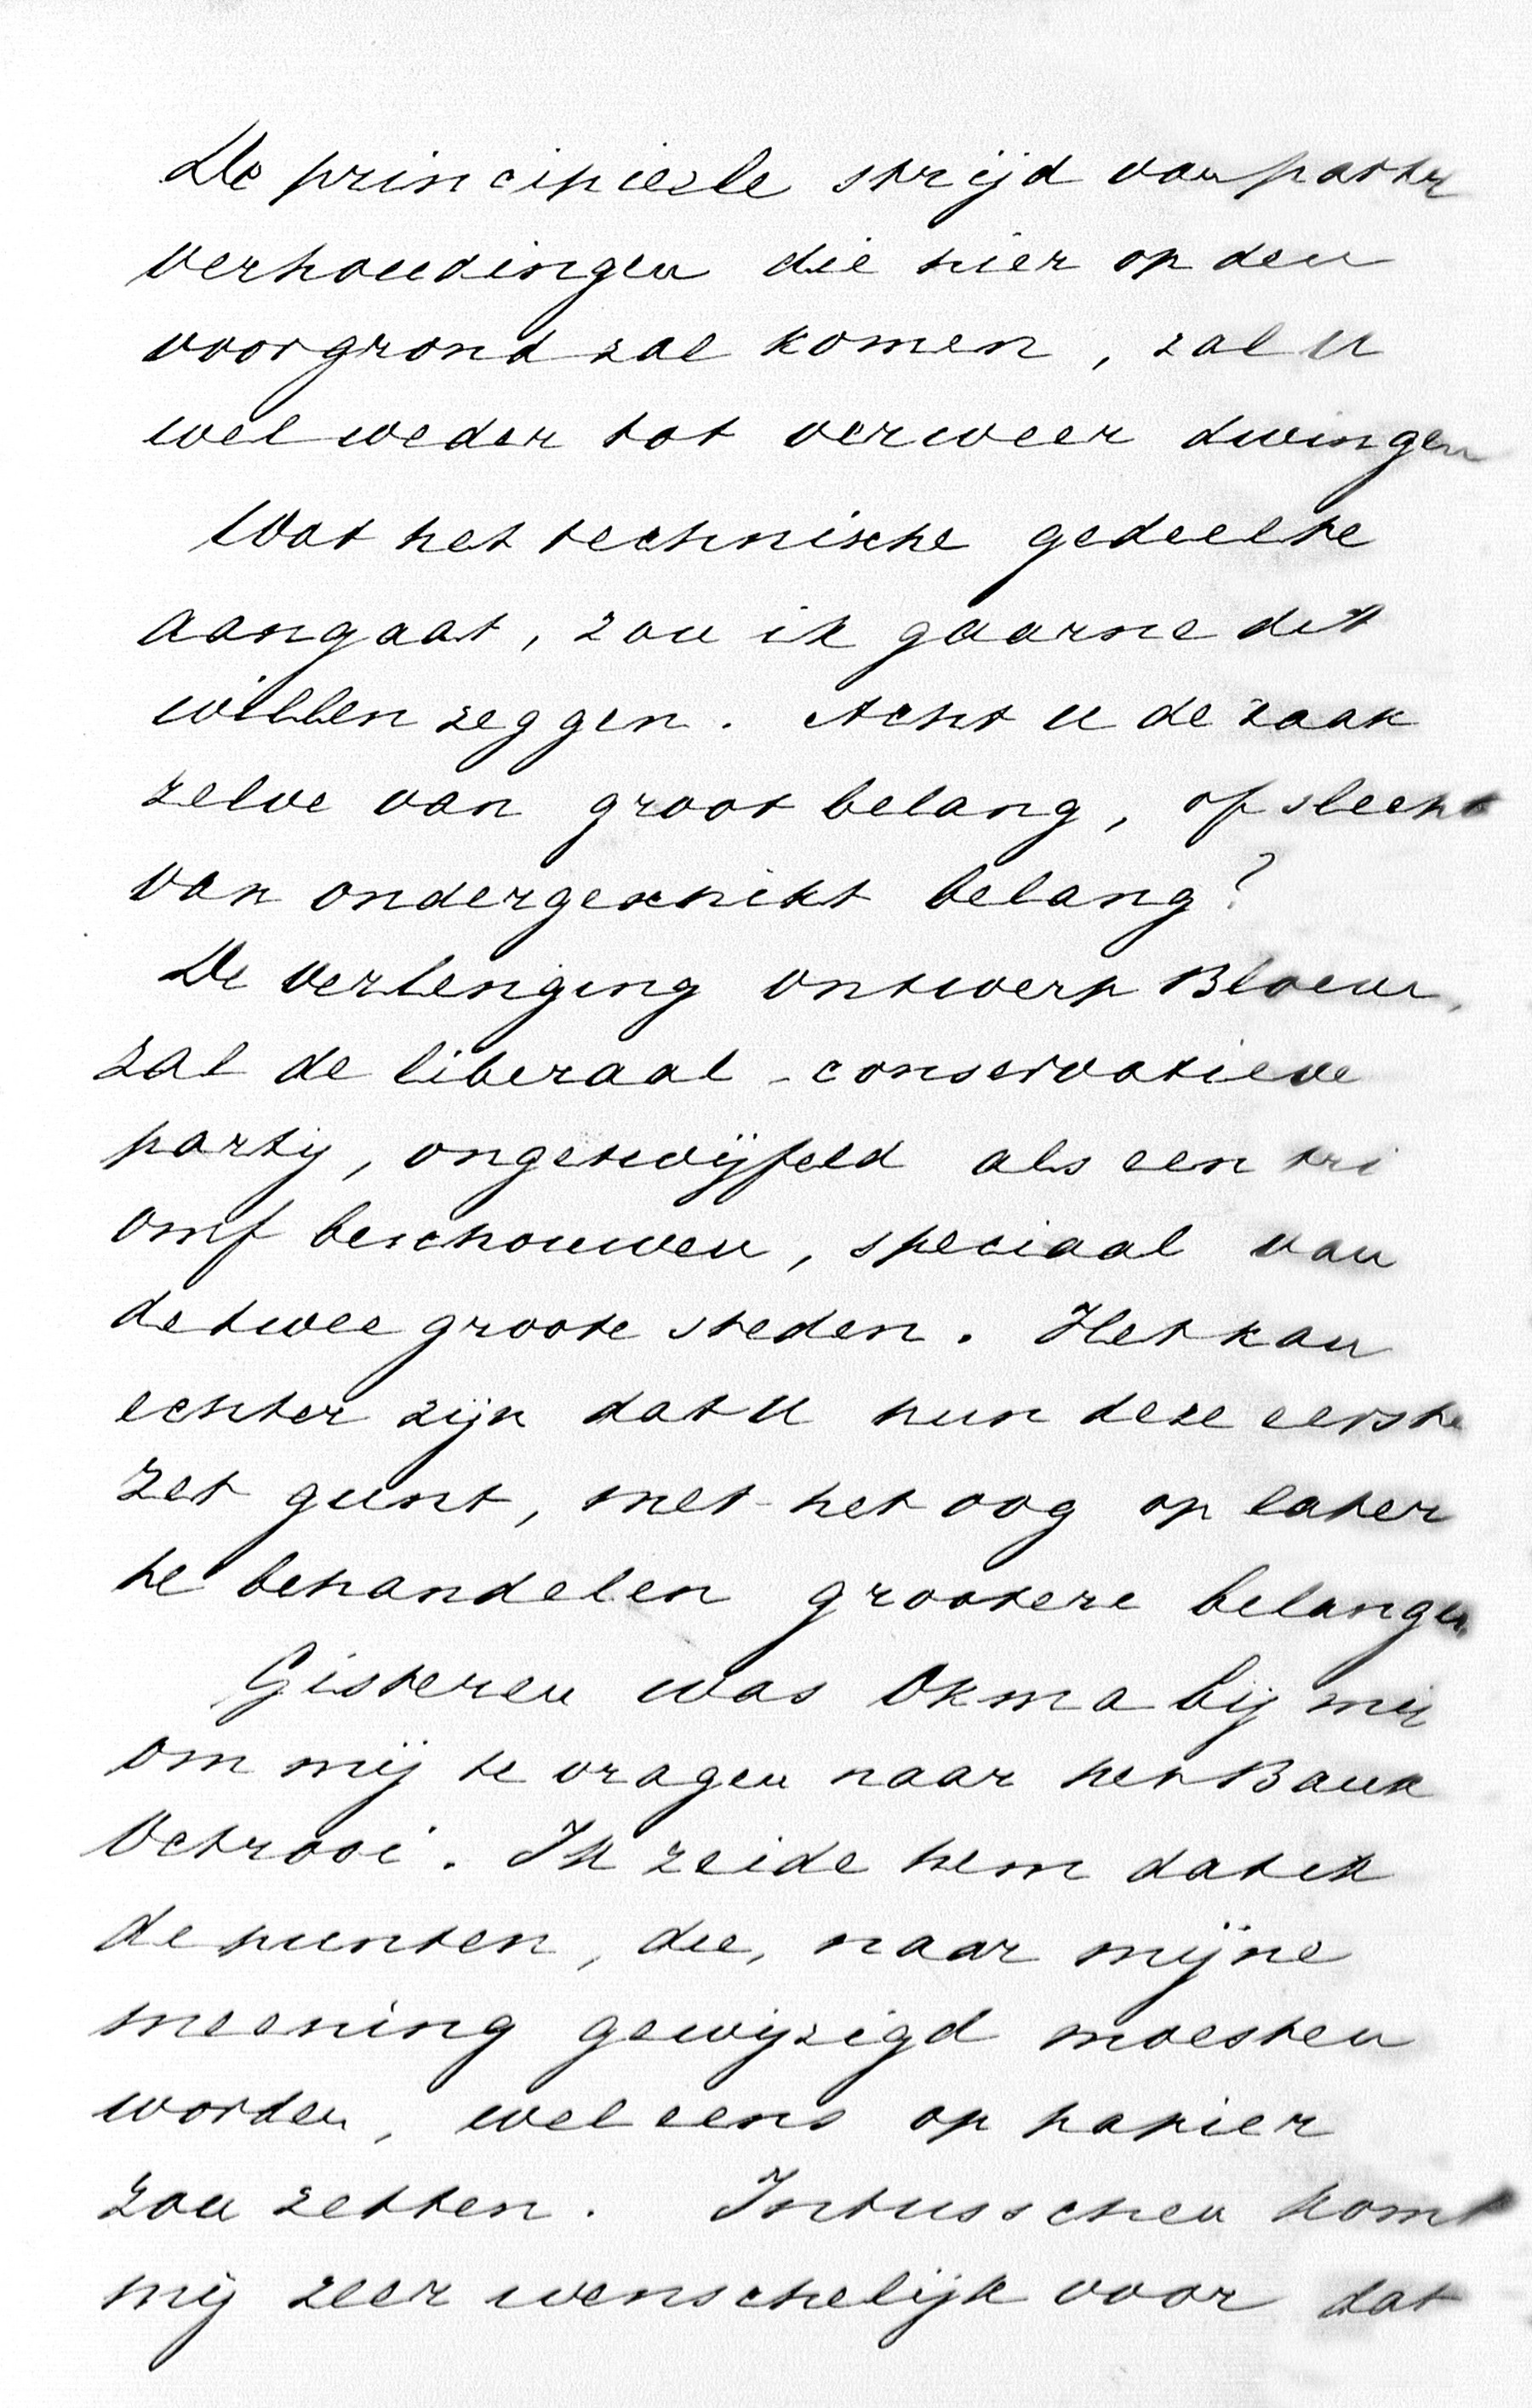 De principieele strijd van party
verhoudingen die hier op den
voorgrond zal komen, zal U
wel weder tot verweer dwingen
Wat het technische gedeelte
aangaat, zou ik gaarne dit
willen zeggen. Acht u de zaak
zelve van groot belang, of slecht
van ondergeschikt belang?
De verlenging ontwerp Bloem,
zal de liberaal-conservatieve
party, ongetwijfeld als een tri
omf beschouwen, speciaal van
de twee groote steden. Het kan
echter zijn dat U hun deze eerste
zet gunt, met het oog op later
te behandelen grootere belangen
Gisteren was Okma bij mij
om mij te vragen naar het Bank
Octrooi. Ik zeide hem dat ik
de punten, die, naar mijne
meening gewijzigd moesten
worden, wel eens op papier
zou zetten. Intusschen komt
mij zeer wenschelijk voor dat